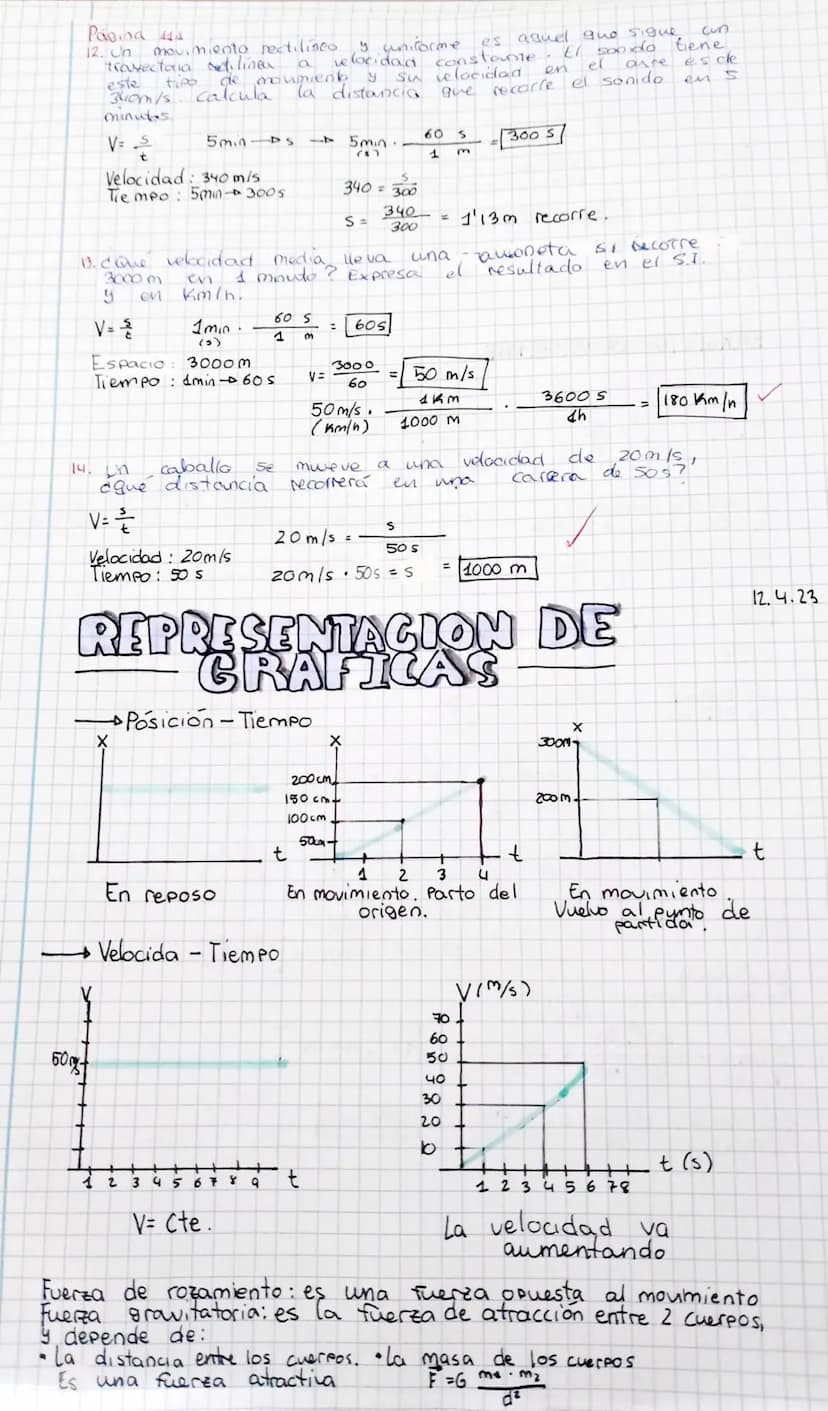 Página 111
12. Un movimiento rectilíneo y uniforme es aquel que sigue un
trayectoria rectilínea a velocidad constante. El sonido tiene
este tipo de movimiento y su velocidad en el aire es de
340m/s. Calcula la distancia que recorre el sonido en 5
minutos
V= s/t 5min → s → 5min (s) · 60 s / 1 m = 300 s
Velocidad: 340 m/s 340 = s/300
Tiempo: 5min → 300s
s = 340/300 = 1'13m recorre.
13. ¿Qué velocidad media lleva una avioneta si recorre
3000m en 1 minuto? Expresa el resultado en el S.I.
y en Km/h.
V= s/t 1min (s) · 60 s / 1 m = 60s
Espacio: 3000m
Tiempo: 1min → 60 s V= 3000/60 = 50 m/s
50m/s (Km/h) · 1Km/1000 m · 3600 s/1h = 180 Km/h
14. Un caballo se mueve a una velocidad de 20m/s,
¿qué distancia recorrerá en una carrera de 50s?
V= s/t
20m/s = s/50s
Velocidad: 20m/s
Tiempo: 50 s 20m/s · 50s = s = 1000 m
12.4.23
REPRESENTACION DE
GRAFICAS
→ Posición - Tiempo
X X X
200cm 150cm 100cm 50cm
300m 200m
t t t
1 2 3 4
En reposo
En movimiento. Parto del
origen.
En movimiento.
Vuelvo al punto de
partida.
→ Velocida - Tiempo
V V(m/s)
50m/s
70
60
50
40
30
20
10
t t (s)
1 2 3 4 5 6 7 8 9
1 2 3 4 5 6 7 8
V= Cte.
La velocidad va
aumentando
Fuerza de rozamiento: es una fuerza opuesta al movimiento
Fuerza gravitatoria: es la fuerza de atracción entre 2 cuerpos,
y depende de:
• La distancia entre los cuerpos. • La masa de los cuerpos
Es una fuerza atractiva F=G m1 · m2 / d²